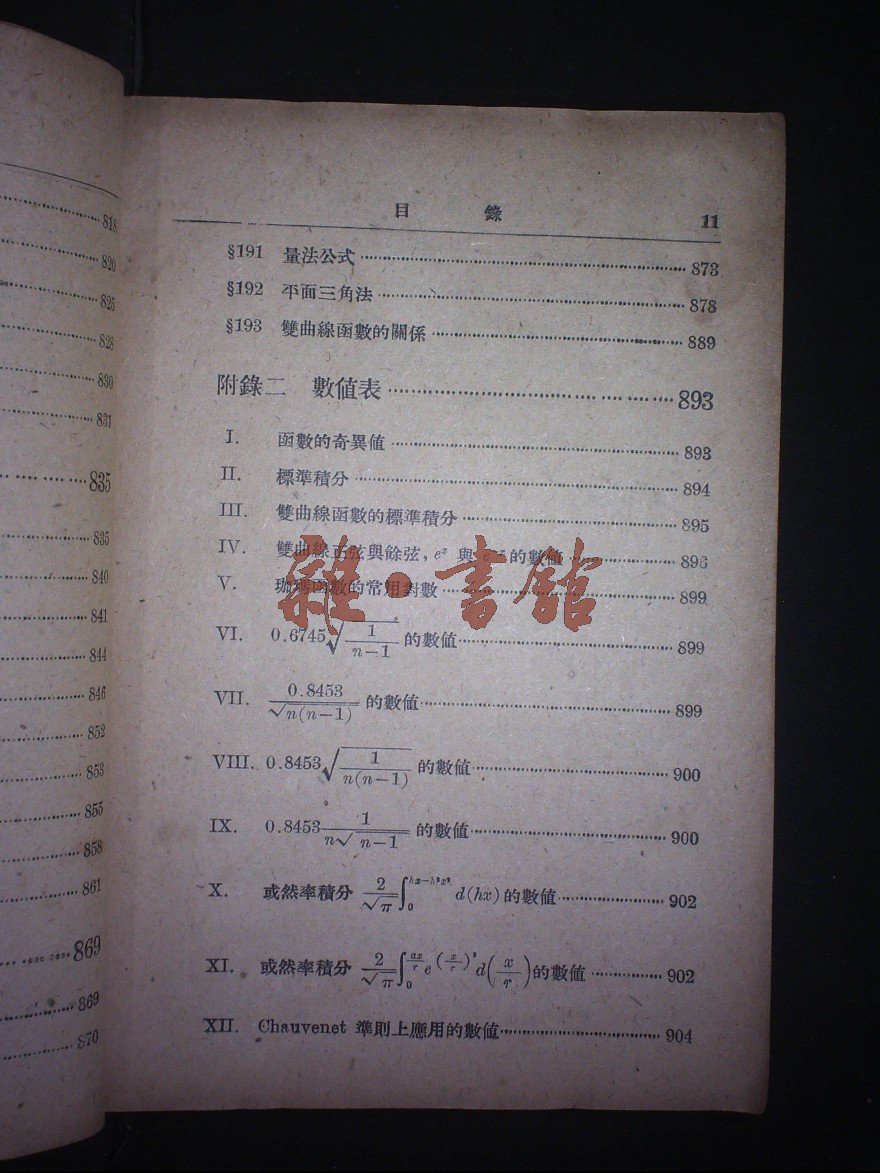 818
820
825
828
830
831
835
835
840
841
844
846
852
853
855
858
861
869
869
870
目 錄 11
§191 量法公式 873
§192 平面三角法 878
§193 雙曲線函數的關係 889
附錄二 數値表 893
I. 函數的奇異値 893
II. 標準積分 894
III. 雙曲線函數的標準積分 895
IV. 雙曲線正弦與餘弦, e^x 與 的數値 896
V. 珈瑪函數的常用對數 899
VI. 0.6745√(1/(n-1)) 的數値 899
VII. 0.8453/√n(n-1) 的數値 899
VIII. 0.8453√(1/(n(n-1))) 的數値 900
IX. 0.8453 1/(n√n-1) 的數値 900
X. 或然率積分 2/√π ∫₀^(hx-h²x²) d(hx) 的數値 902
XI. 或然率積分 2/√π ∫₀^(ax/r) e^(x/r)² d(x/r) 的數値 902
XII. Chauvenet 準則上應用的數値 904
雜·書館